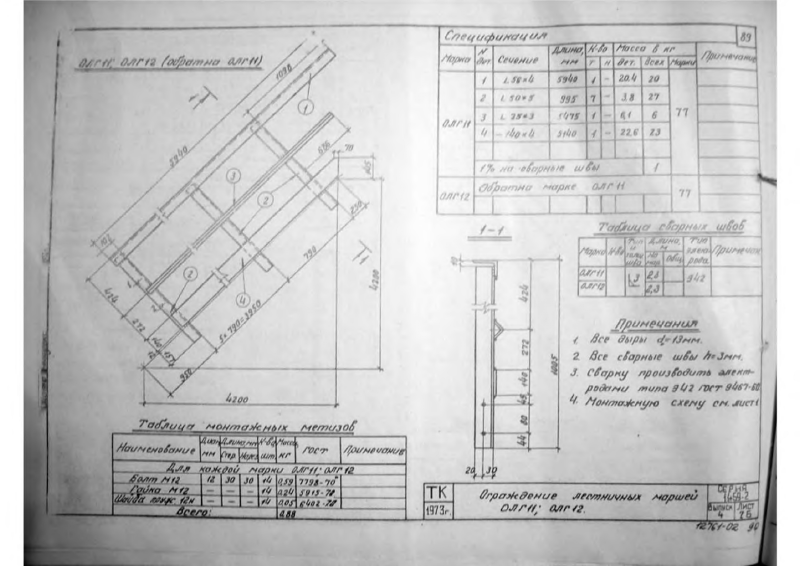 ОЛГ11; ОЛГ12 (обратна ОЛГ11)
1090
5940
1
636
70
3
2
605
250
790
4200
10
424
272
2
4
5×790=3950
950
4200
Спецификация
89
Марка
N дет.
Сечение
Длина, мм
К-во
Масса в кг
Примечание
т
н
дет.
всех
марки
ОЛГ11
1 L 56×4 5940 1 – 20.4 20
2 L 50×5 995 7 – 3.8 27
3 L 25×3 5475 1 – 6,1 6
4 – 140×4 5140 1 – 22,6 23
77
1% на сварные швы 1
ОЛГ12 Обратна марке ОЛГ11 77
1–1
424
272
140
45
80
44
1005
20
30
Таблица сварных швов
Марка
К-во
Длина, м
Общ.
Тип электрода
Примечан.
ОЛГ11
ОЛГ12
3
2,3
2,3
Э42
Примечания
1. Все дыры d=13мм.
2. Все сварные швы h=3мм.
3. Сварку производить элект-
родами типа Э42 ГОСТ 9467-60
4. Монтажную схему см. лист 1
Таблица монтажных метизов
Наименование
Диам. мм
Длина, мм
Стер.
Нарез.
К-во шт.
Масса, кг
ГОСТ
Примечание
Для каждой марки ОЛГ11; ОЛГ12
Болт М12 12 30 30 14 0,59 7798-70
Гайка М12 – – – 14 0,24 5915-70
Шайба пруж. 12н – – – 14 0,05 6402-70
Всего: 0,88
ТК
1973г.
Ограждение лестничных маршей
ОЛГ11; ОЛГ12.
Серия
1.459-2
Выпуск
4
Лист
76
12761-02 90